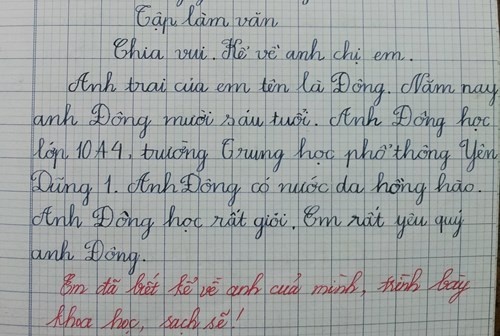 Tập làm văn
Chia vui. Kể về anh chị em.
Anh trai của em tên là Đông. Năm nay
anh Đông mười sáu tuổi. Anh Đông học
lớp 10A4, trường Trung học phổ thông Yên
Dũng 1. Anh Đông có nước da hồng hào.
Anh Đông học rất giỏi. Em rất yêu quý
anh Đông.
Em đã biết kể về anh của mình, trình bày
khoa học, sạch sẽ!